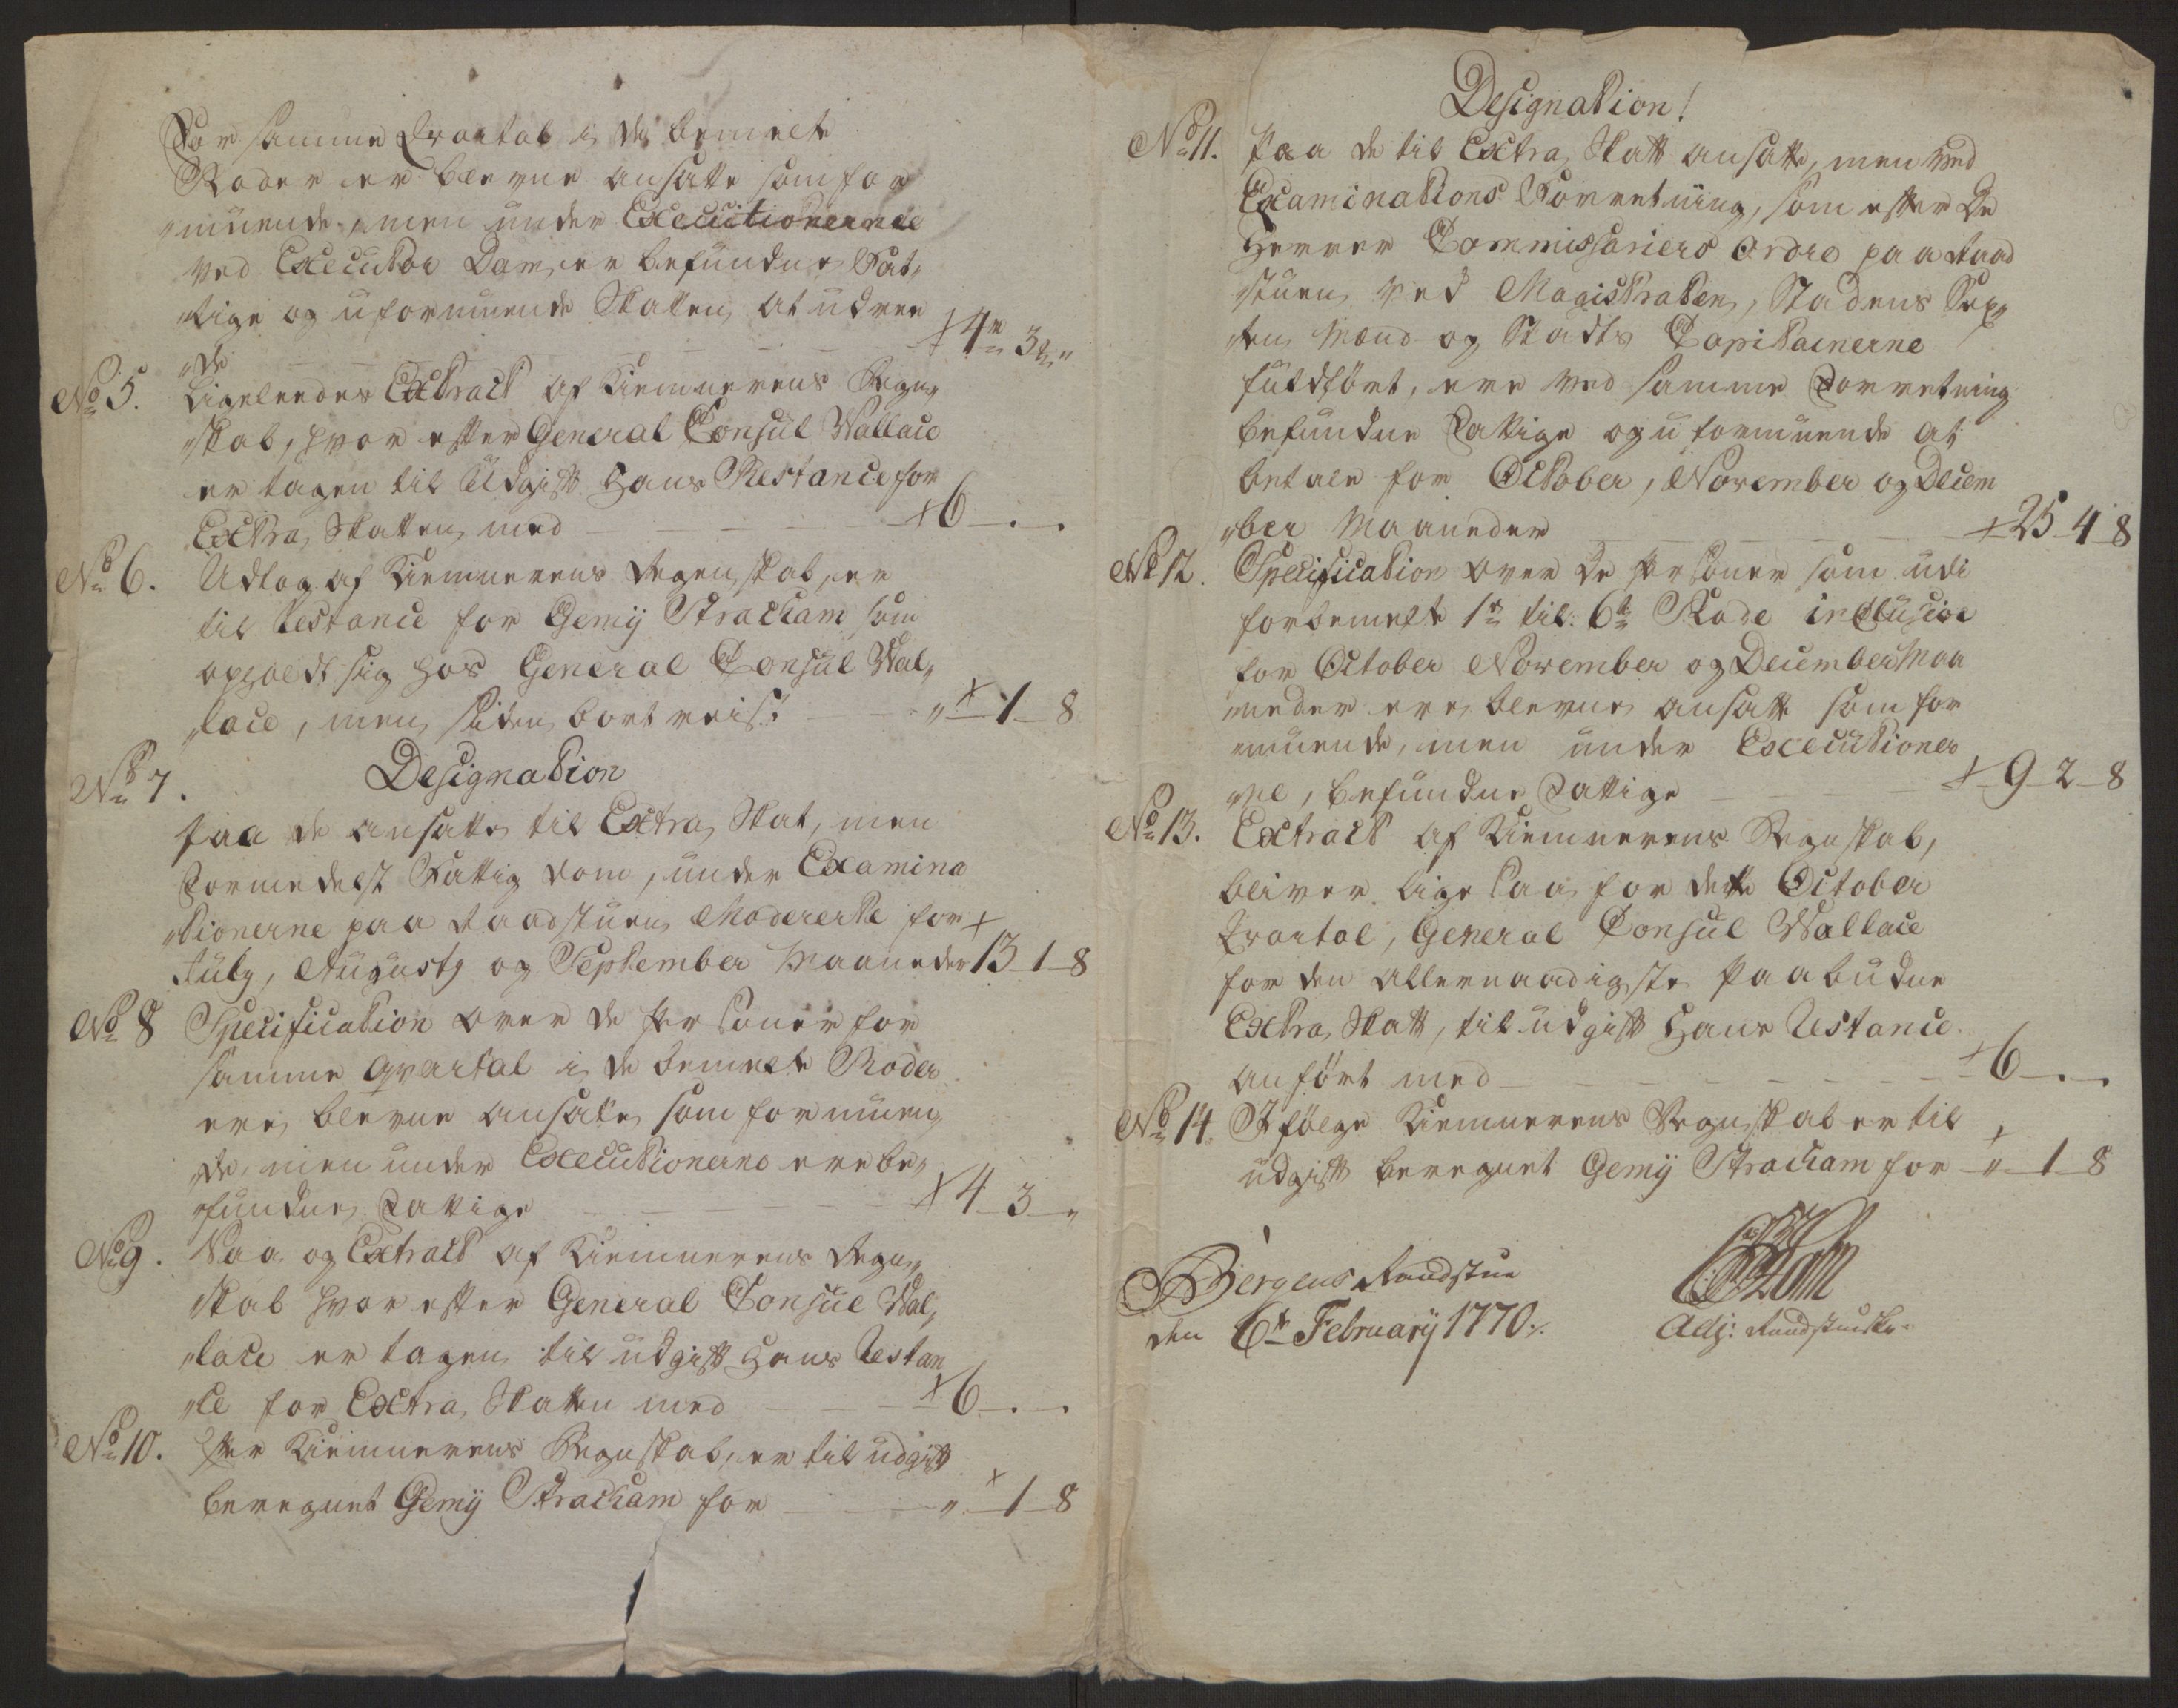 For samme Qvartal i de bemelte
Roder ere blevne ansatte som for
muende, men under Executionerne
ved Executor Dam, ere befundne Fat,
tige og uformuende Skatten at udree
de 4r 3 "
No 5. Ligeleedes Extract af Kiemnerens Regn,
skab, hvor efter General Consul Wallace
er tagen til Udgift Hans Restance for
Extra Skatten med 6 . .
No 6. Udtog af Kiemnerens Regenskab, er
til Restance for Gemij Stracham som
opholdt sig hos General Consul Wal,
lace, men siden bortreist " 1 8
No 7. Designation
Paa de ansatte til Extra Skat, men
Formedelst Fattigdom, under Examina
tionerne paa Raadstuen Modererte for
July, Augusty og September Maaneder 13 1 8
No 8 Specification over de Personer for
samme Qvartal i de bemelte Roder
ere blevne ansatte som formuen
de, men under Executionerne ere be,
fundne Fattige 4 3 "
No 9. Saa og Extract af Kiemnerens Regn,
skab hvor efter General Consul Wal,
lace er tagen til udgift Hans Restan
ce for Extra Skatten med 6 . .
No 10. Efter Kiemnerens Regnskab, er til udgift
beregnet Gemij Stracham for " 1 8
Designation!
No 11. Paa de til Extra Skatt ansatte, men ved
Examinations Forretning, som efter De
Herrer Commissariers Ordre paa Raad
stuen ved Magistraten, Stadens
ten Mænd og Stadts Capitainerne
fuldført, ere ved samme Forretning
befundne Fattige og uformuende at
betale for October, November og Decem
ber Maaneder 25 4 8
No 12. Specification over De Personer som udi
forbemelte 1te til 6te Rode inclusive
for October November og December Maa
neder ere blevne ansatte som for
muende, men under Executioner
ne, befundne Fattige 9 2 8
No 13. Extract af Kiemnerens Regnskab,
bliver lige saa for dette October
Qvartal, General Consul Wallace
for den allernaadigste Paabudne
Extra Skatt, til udgift Hans Restance
anført med 6 . .
No 14. I følge Kiemnerens Regnskab er til
udgift beregnet Gemij Stracham for " 1 8
Bergens Raadstue
den 6te February 1770.
Adj: Raadstueskr